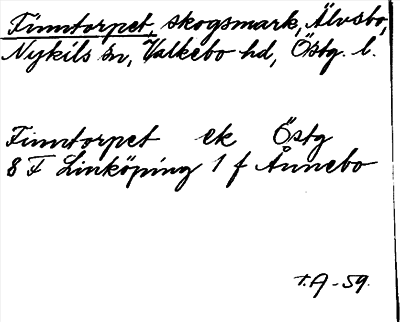 Finntorpet, skogsmark, Älvsbo,
Nykils sn, Valkebo hd, Östg. l.
Finntorpet ek Östg
8 F Linköping 1 f Ånnebo
T.A-59.